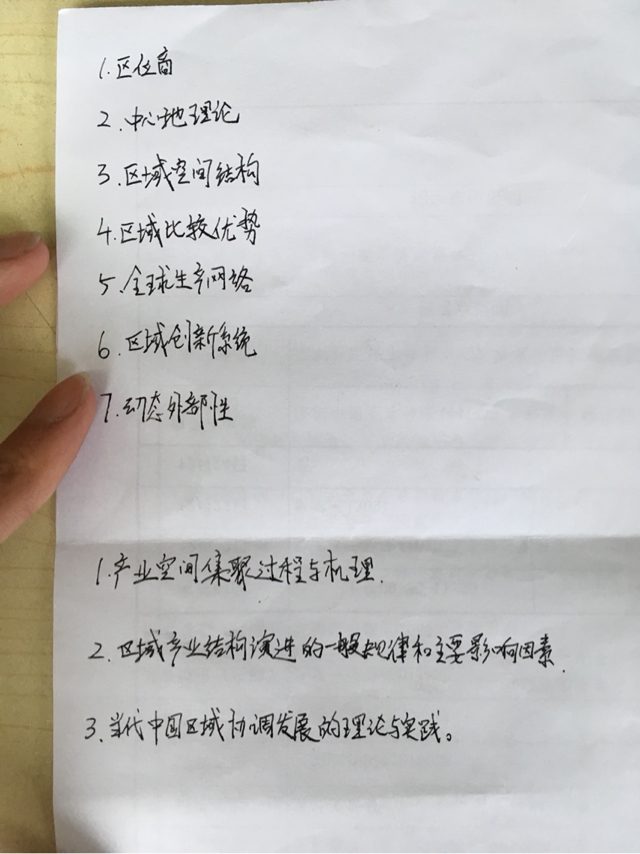 1.区位商
2.中心地理论
3.区域空间结构
4.区域比较优势
5.全球生产网络
6.区域创新系统
7.动态外部性
1.产业空间集聚过程与机理.
2.区域产业结构演进的一般规律和主要影响因素.
3.当代中国区域协调发展的理论与实践。